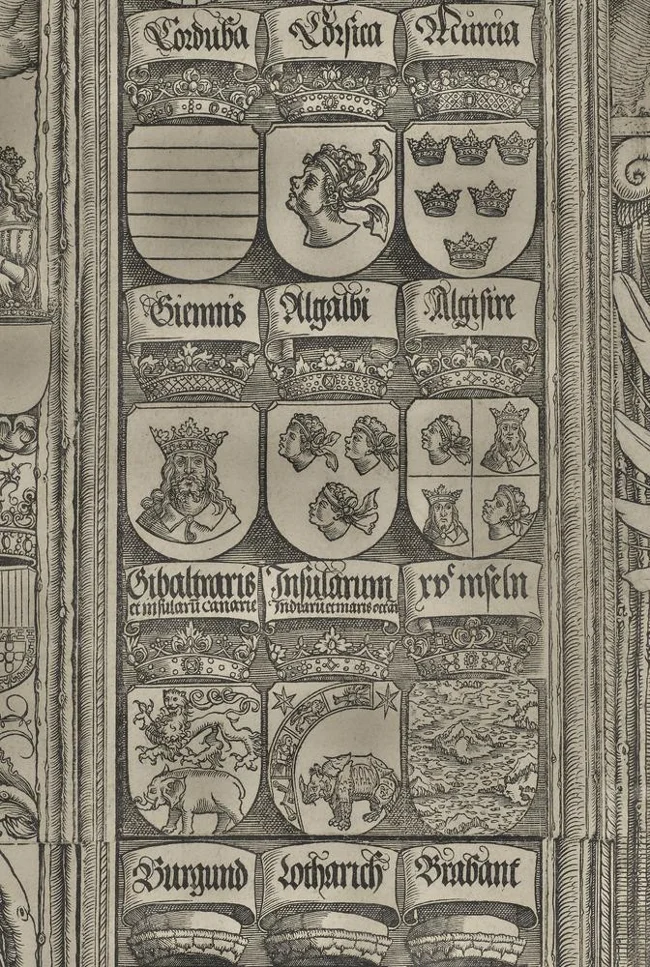 Corduba
Corsica
Murcia
Giennis
Algalbi
Algisire
Gibaltraris
et insularū Canarie
Insularum
Indiarū et maris occā
xvᶜ inseln
Burgund
Lotharich
Brabant